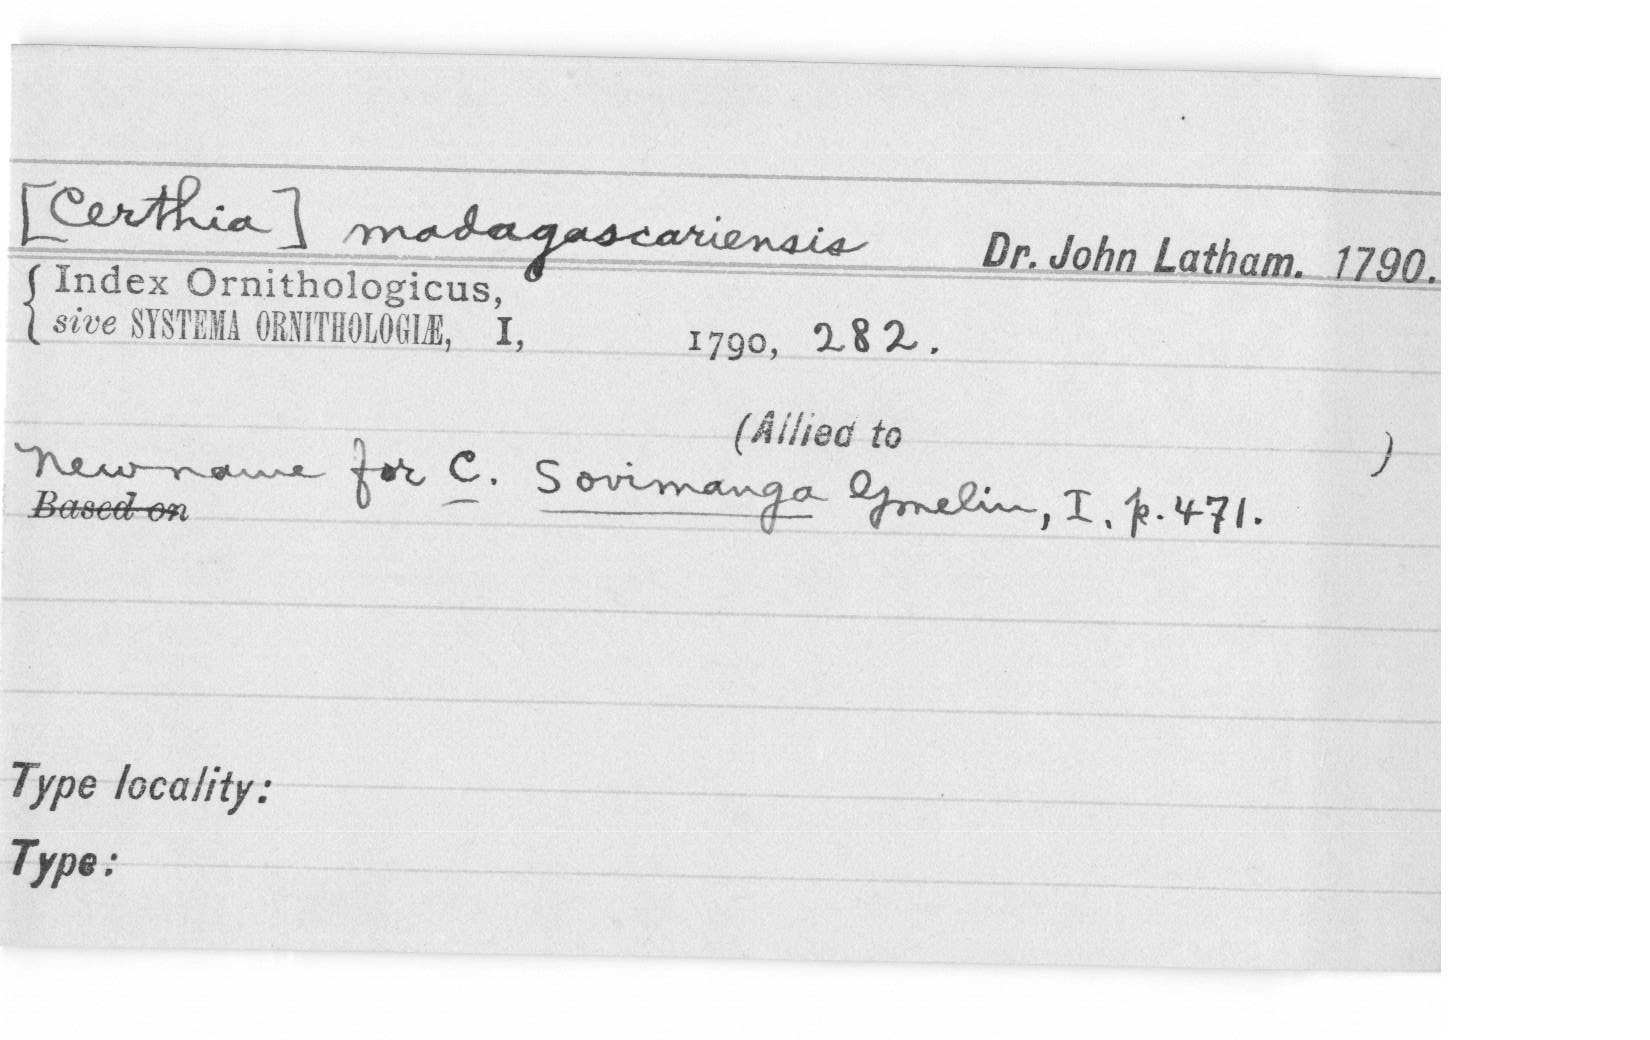 [Certhia] madagascariensis Dr. John Latham. 1790.
Index Ornithologicus,
sive SYSTEMA ORNITHOLOGIÆ, I, 1790, 282.
(Allied to )
New name for C. Sovimanga Gmelin, I, p. 471.
Based on
Type locality:
Type: